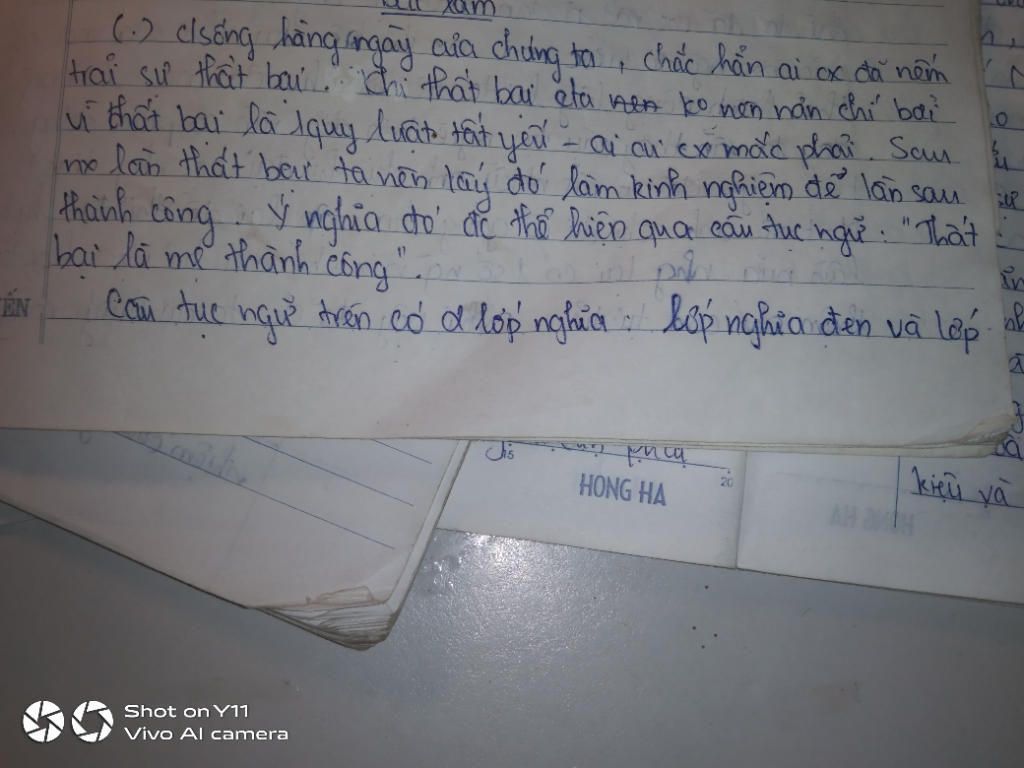 (.) c/sống hàng ngày của chúng ta, chắc hẳn ai cx đã nếm
trải sự thất bại. Khi thất bại cta ko nên nản chí bởi
vì thất bại là 1 quy luật tất yếu - ai ai cx mắc phải. Sau
mỗi lần thất bại ta nên lấy đó làm kinh nghiệm để lần sau
thành công. Ý nghĩa đó đc thể hiện qua câu tục ngữ: "Thất
bại là mẹ thành công".
Câu tục ngữ trên có 2 lớp nghĩa: lớp nghĩa đen và lớp
ẾN
15
20
HONG HA
kiệu và
Shot on Y11
Vivo AI camera